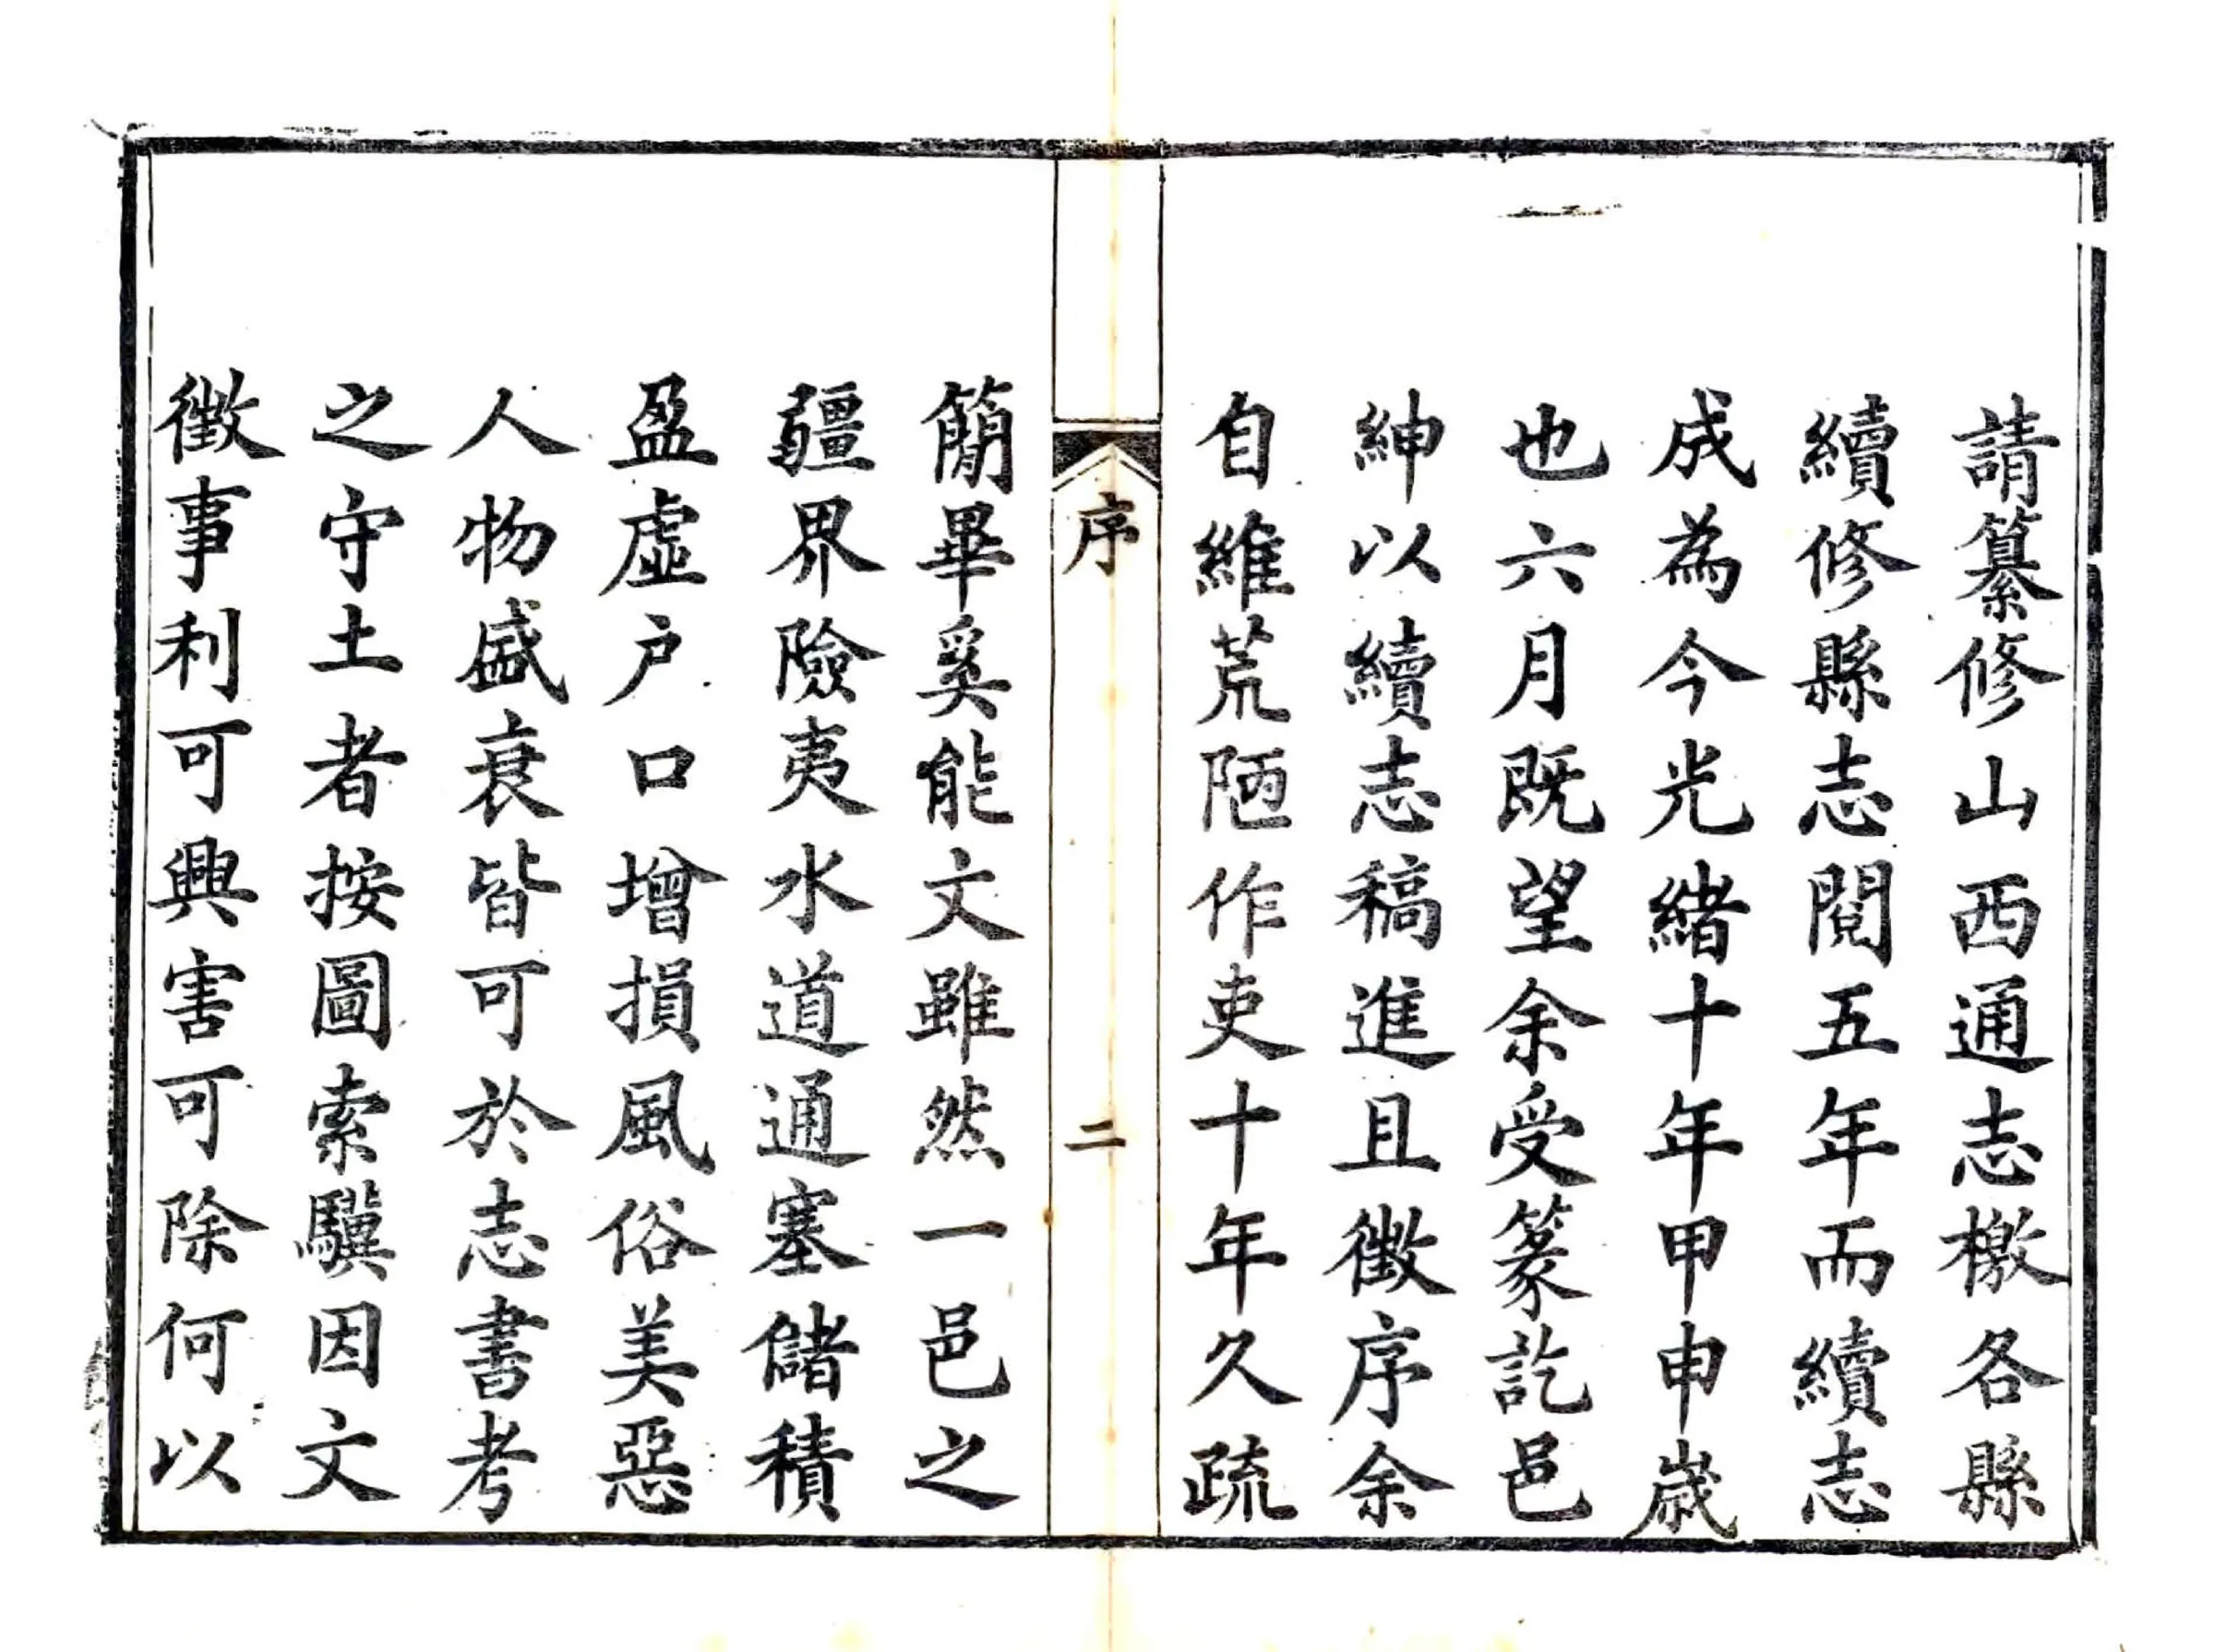 請纂修山西通志檄各縣
續修縣志閱五年而續志
成為今光緒十年甲申歲
也六月既望余受篆訖邑
紳以續志稿進且徵序余
自維荒陋作吏十年久疏
序
二
簡畢奚能文雖然一邑之
疆界險夷水道通塞儲積
盈虛户口增損風俗美惡
人物盛衰皆可於志書考
之守土者按圖索驥因文
徵事利可興害可除何以